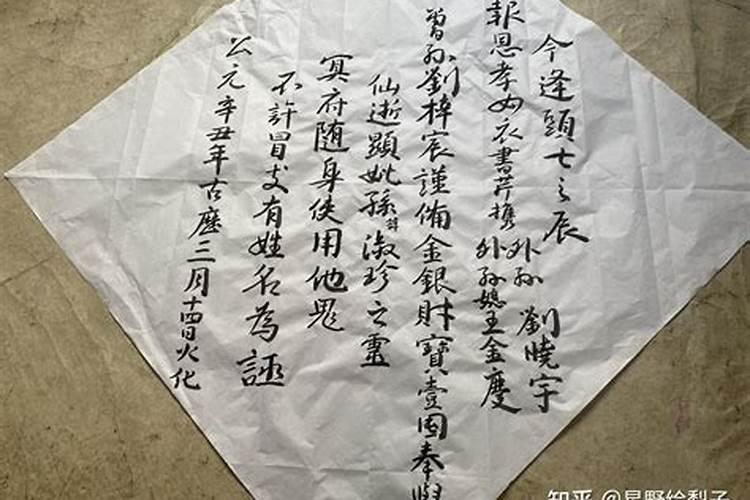 今逢頭七之辰
外孫 劉曉宇
報恩孝女衣書芹携外孫媳王金慶
曾孙劉梓宸謹俻金銀財寶壹圅奉與
仙逝顯妣孫淑珍之靈
冥府随身使用他鬼
不許冒支有姓名為証
公元辛丑年古歷三月十四日火化
知乎